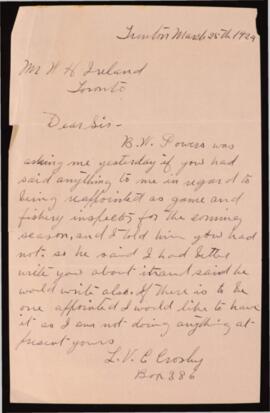 Trenton March 25th 1924
Mr W H Ireland
Toronto
Dear Sir-
B. W. Powers was
asking me yesterday if you had
said anything to me in regard to
being reappointed as game and
fishery inspector for the coming
season, and I told him you had
not. so he said I had better
write you about it and said he
would write also. If there is to be
one appointed I would like to have
it as I am not doing anything at
present yours
L. V. C Crosby
Box 386